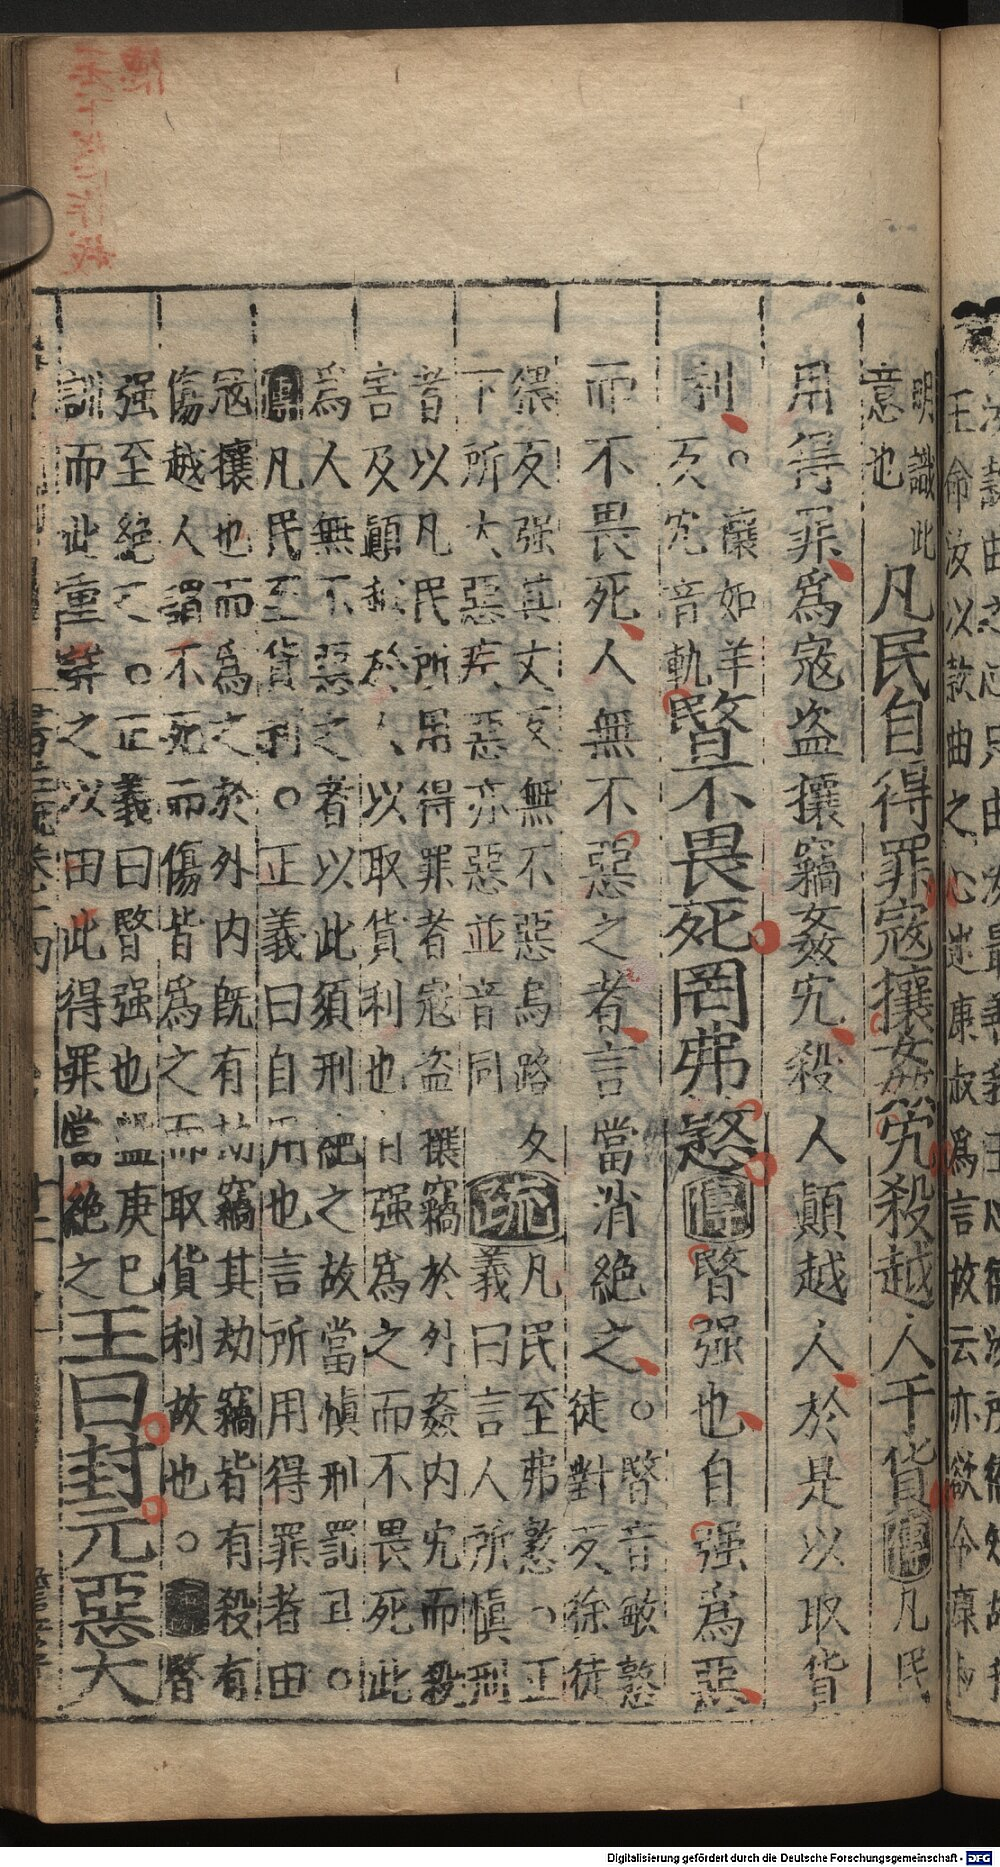 明識此
意也
凡民自得罪寇攘姦宄殺越人于貨傳凡民
用得罪為寇盜攘竊姦宄殺人顛越人於是以取貨
利○
藥如羊
宄音軌
暋不畏死罔弗憝傳暋强也自强為惡
而不畏死人無不惡之者言當消絕之○
暋音敏憝
徒對反徐徒
猥反强其丈反無不惡烏路反
下所大惡疾惡亦惡並音同
疏
凡民至弗憝○正
義曰言人所慎刑
者以凡民所用得罪者寇盜攘竊於外姦內宄而殺
害及顛越於人以取貨利也自强為之而不畏死此
為人無不惡之者以此須刑絕之故當慎刑罰
傳凡民至貨利○正義曰自用也言所用得罪者由
寇攘也而為之於外內既有劫竊其劫竊皆有殺有
傷越人謂不死而傷皆為之而取貨利故也○傳暋
强至絕之○正義曰暋强也盤庚已
訓而此重詳之以由此得罪當絕之
王曰封元惡大
王命汝以款曲之心述康叔為言故云亦欲令康叔
Digitalisierung gefördert durch die Deutsche Forschungsgemeinschaft - DFG